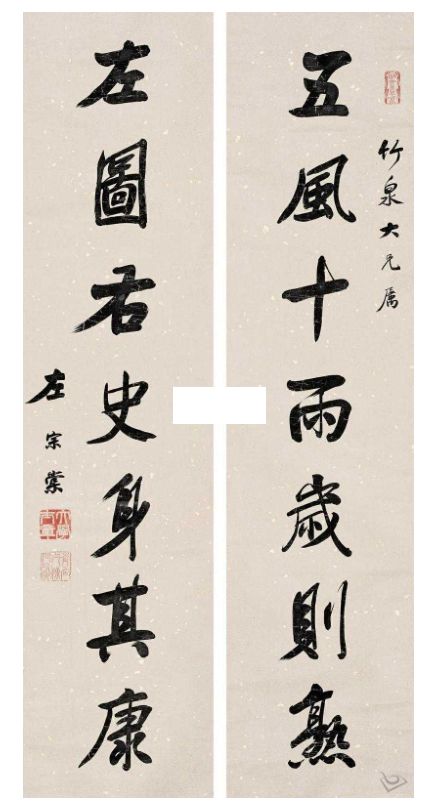 竹泉大兄属
五風十雨歲則熟
左圖右史身其康
左宗棠